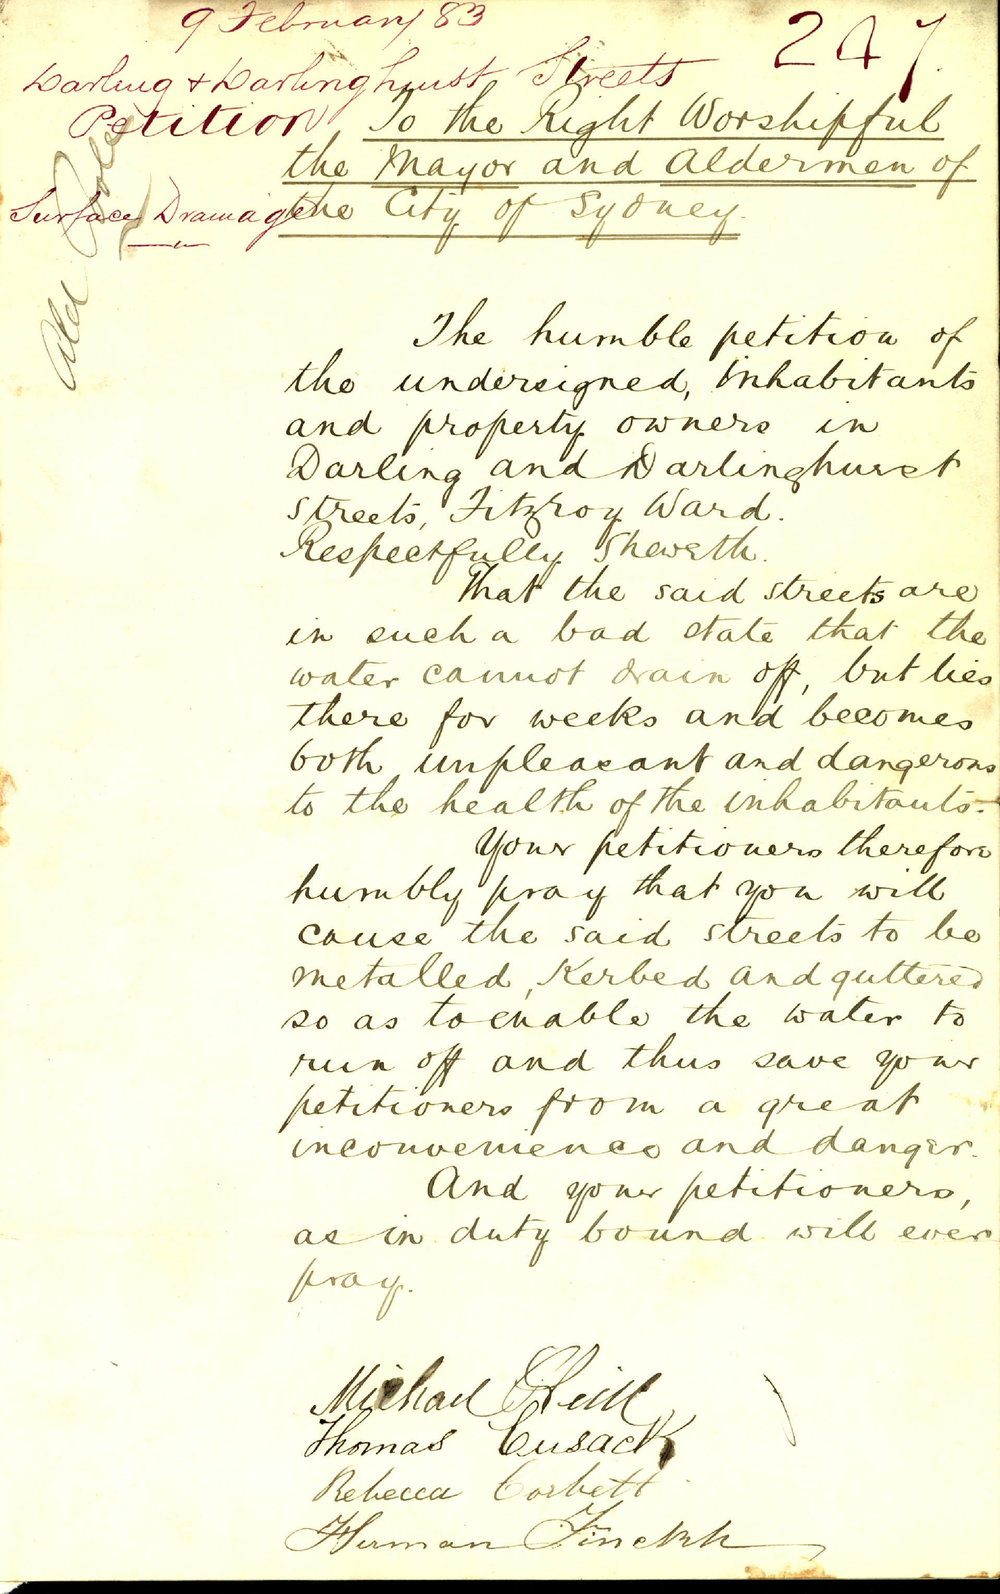 9 February 83
247.
Darling & Darlinghurst Streets
Petition
Surface Drainage
Ald
To the Right Worshipful
the Mayor and Aldermen of
the City of Sydney.
The humble petition of
the undersigned, Inhabitants
and property owners in
Darling and Darlinghurst
Streets, Fitzroy Ward.
Respectfully Sheweth.
That the said streets are
in such a bad state that the
water cannot drain off, but lies
there for weeks and becomes
both unpleasant and dangerous
to the health of the inhabitants.
Your petitioners therefore
humbly pray that you will
cause the said streets to be
metalled, Kerbed and guttered
so as to enable the water to
run off and thus save your
petitioners from a great
inconvenience and danger.
And your petitioners,
as in duty bound will ever
pray.
Michael O'Neill
Thomas Cusack
Rebecca Corbett
Herman Finckh